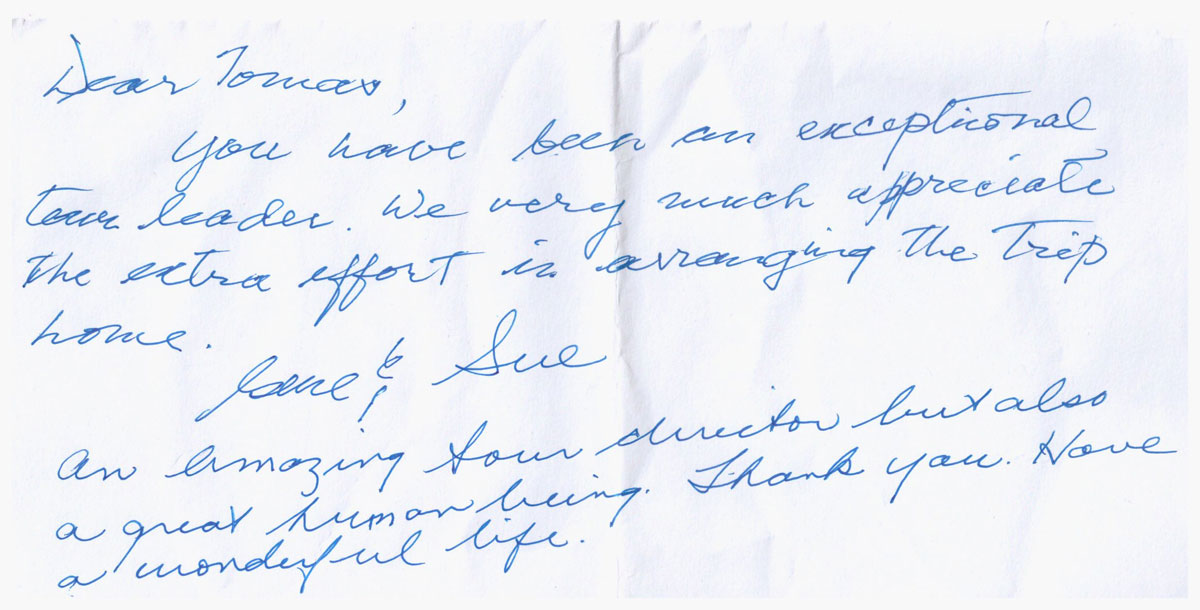 Dear Tomas,
you have been an exceptional
tour leader. We very much appreciate
the extra effort in arranging the trip
home.
Jane & Sue
An amazing tour director but also
a great human being. Thank you. Have
a wonderful life.